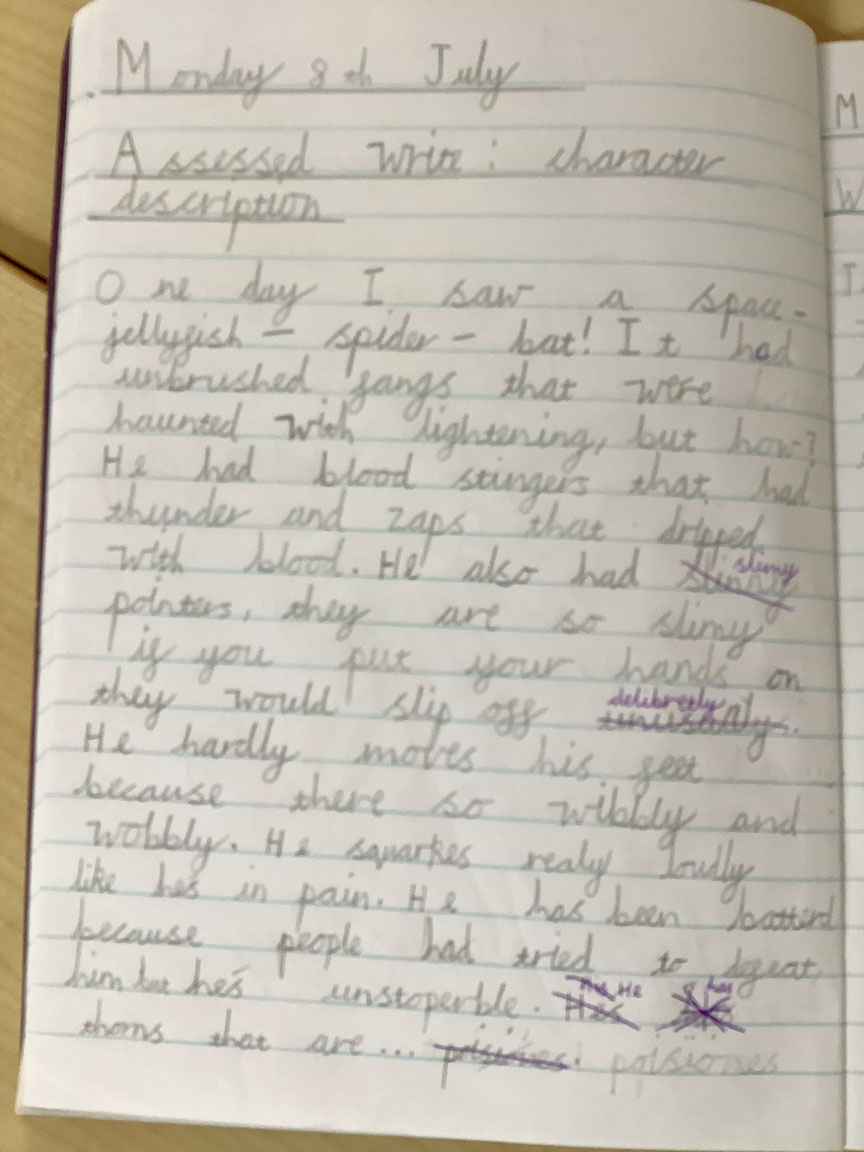 Monday 8th July
Assessed write: character
description
One day I saw a space-
jellyfish - spider - bat! It had
unbrushed fangs that were
haunted with lightening, but how?
He had blood stingers that had
thunder and zaps that dripped
with blood. He also had slimy
pointers, they are so slimy
if you put your hands on
they would slip off delibretly
He hardly moves his feet
because there so wibbly and
wobbly. He squarkes realy loully
like hes in pain. He has been batterd
because people had tried to defeat
him but he's unstoperble. He has
thorns that are... poisiones
M
W
I